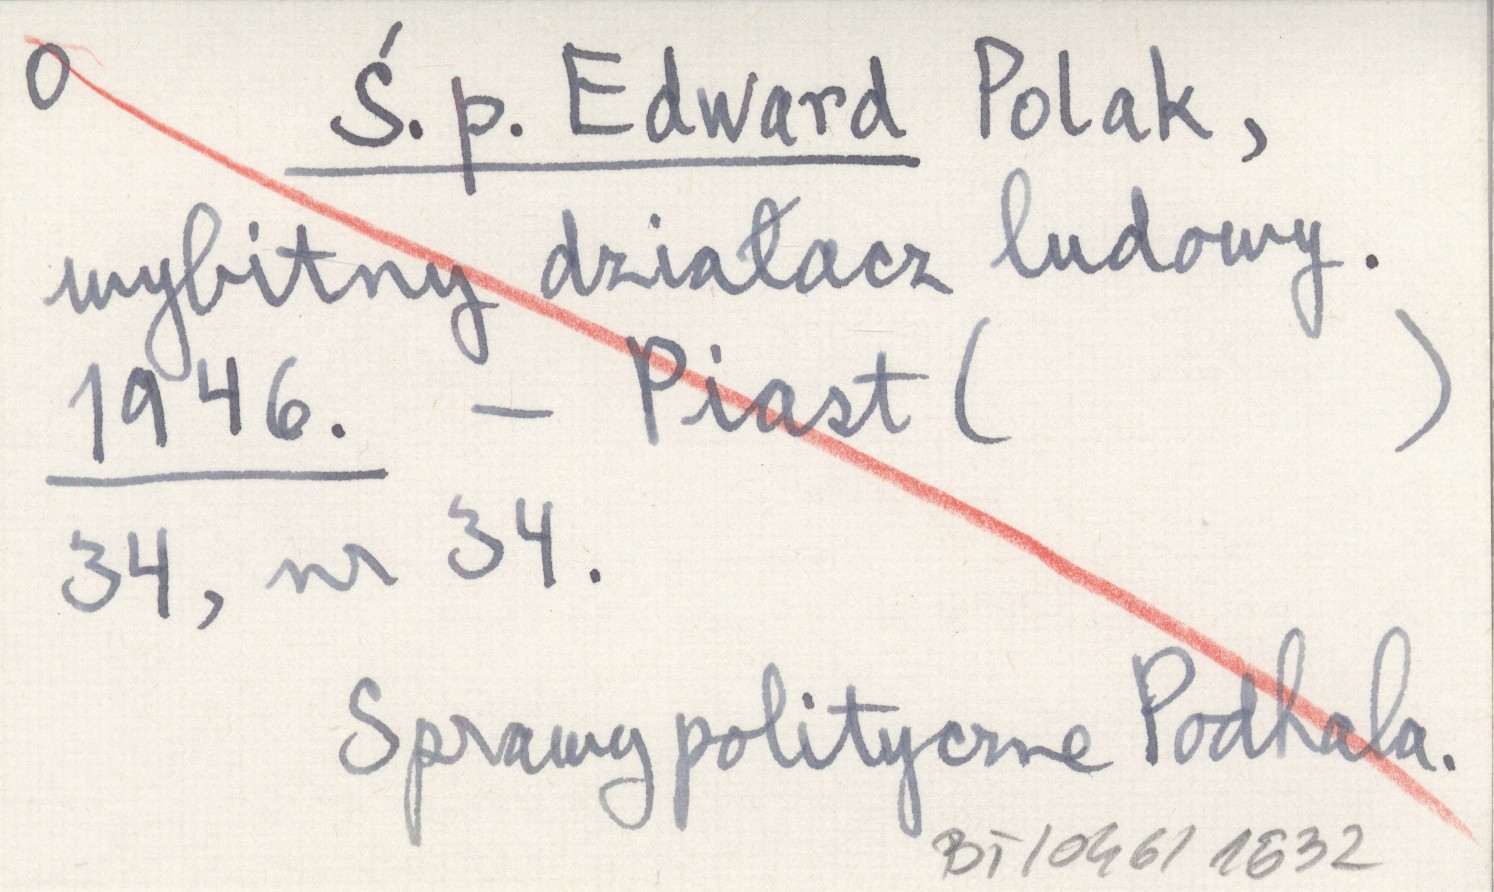 O Ś.p. Edward Polak,
wybitny działacz ludowy.
1946. – Piast ( )
34, nr 34.
Sprawy polityczne Podhala.
BT/046/1632